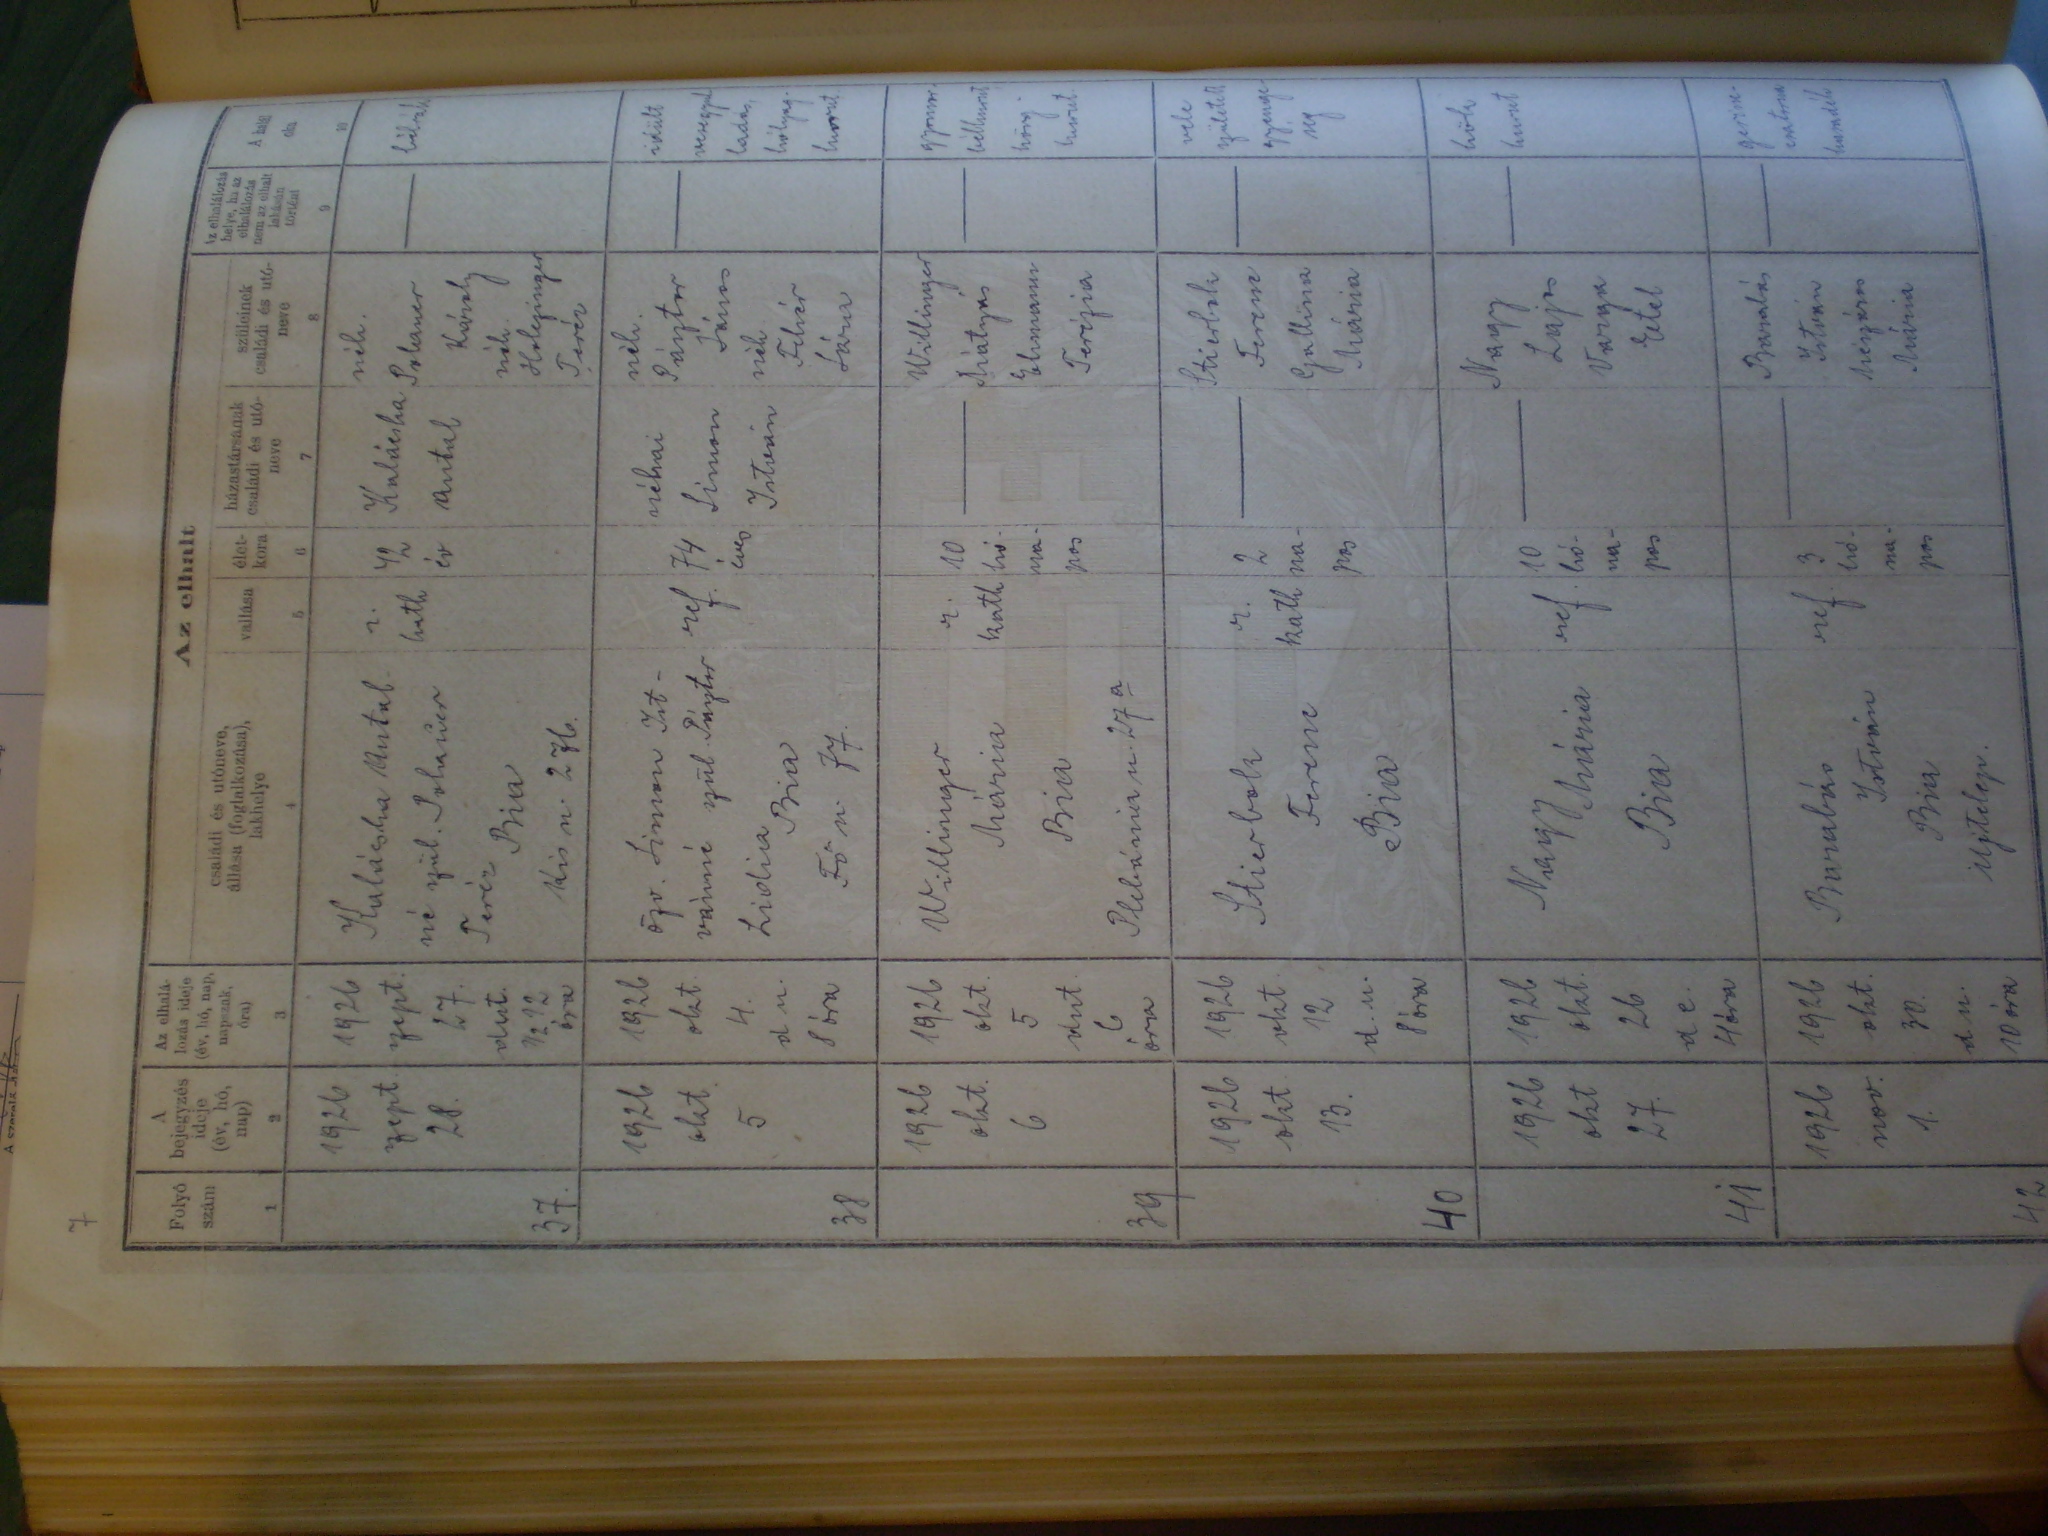 7
Az elhalt
Folyó
szám
1
A
bejegyzés
ideje
(év, hó,
nap)
2
Az elhalá-
lozás ideje
(év, hó, nap,
napszak,
óra)
3
családi és utóneve,
állása (foglalkozása),
lakhelye
4
vallása
5
élet-
kora
6
házastársának
családi és utó-
neve
7
szüleinek
családi és utó-
neve
8
Az elhalálozás
helye, ha az
elhalálozás
nem az elhalt
lakásán
történt
9
A halál
oka
10
37.
1926
szept.
28.
1926
szept.
27.
dut.
1/2 12
óra
Kulácska Antal-
né szül. Pohauer
Teréz
Bia
Kis u. 276.
r.
kath
42
év
Kulácska
Antal
néh.
Pohauer
Károly
néh.
Holczinger
Teréz
38
1926
okt.
5
1926
okt.
4.
d u.
8 óra
özv. Simon Ist-
vánné szül. Pásztor
Lidia
Bia
Fő u. 77.
ref.
74
éves
néhai
Simon
István
néh.
Pásztor
János
néh
Fehér
Sára
idült
hurut
39
1926
okt.
6
1926
okt.
5
dut.
6
óra
Willinger
Mária
Bia
Plébánia u. 27 a
r.
kath
10
hó-
na-
pos
Willinger
Mátyás
Ehmann
Terézia
gyomor.
bélhurut
hörgi
hurut.
40
1926
okt.
13.
1926
okt.
12
d. u.
8 óra
Stierbok
Ferenc
Bia
r.
kath
2
na-
pos
Stierbok
Ferenc
Gallina
Mária
vele
született
gyenge-
ség
41
1926
okt
27.
1926
okt.
26
d e.
4 óra
Nagy
Mária
Bia
ref.
10
hó-
na-
pos
Nagy
Lajos
Varga
Etel
hurut
42
1926
nov.
1.
1926
okt.
30.
d. u.
10 óra
Barabás
István
Bia
Ujtelep.
ref.
3
hó-
na-
pos
Barabás
István
Mészáros
Mária